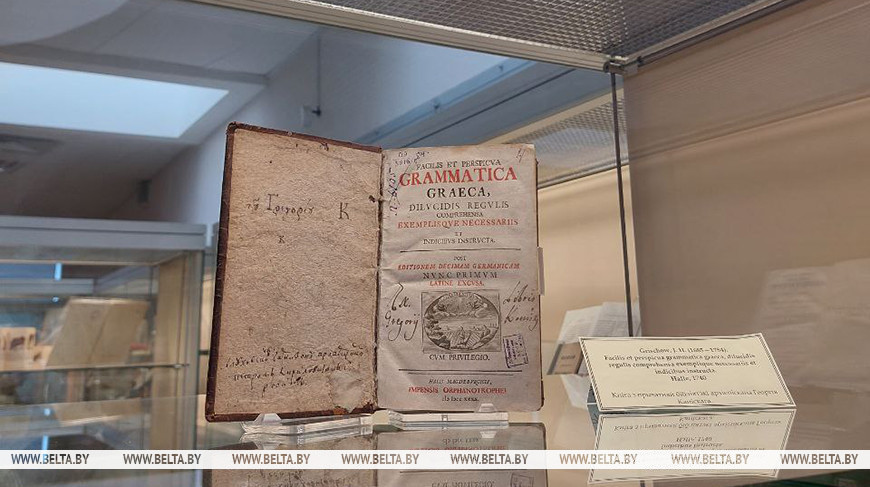 WWW.BELTA.BY
Григорій К
К
FACILIS ET PERSPICVA
GRAMMATICA
GRAECA,
DILVCIDIS REGVLIS
COMPREHENSA
EXEMPLISQVE NECESSARIIS
ET
INDICIBVS INSTRVCTA.
POST
EDITIONEM DECIMAM GERMANICAM
NVNC PRIMVM
LATINE EXCVSA.
Ex Libris
Gregorij
CVM PRIVILEGIO.
HALAE MAGDEBVRGICAE,
IMPENSIS ORPHANOTROPHEI
Grischow, J. H. (1685—1754).
Facilis et perspicua grammatica graeca, dilucidis
regulis comprehensa exemplisque necessariis et
indicibus instructa.
Halle, 1740
Кніга з прыватнай бібліятэкі архіепіскапа Георгія
Каніскага
WWW.BELTA.BY WWW.BELTA.BY WWW.BELTA.BY WWW.BELTA.BY WWW.BELTA.BY WWW.BELTA.BY WWW.BELTA.BY WWW.BELTA.BY